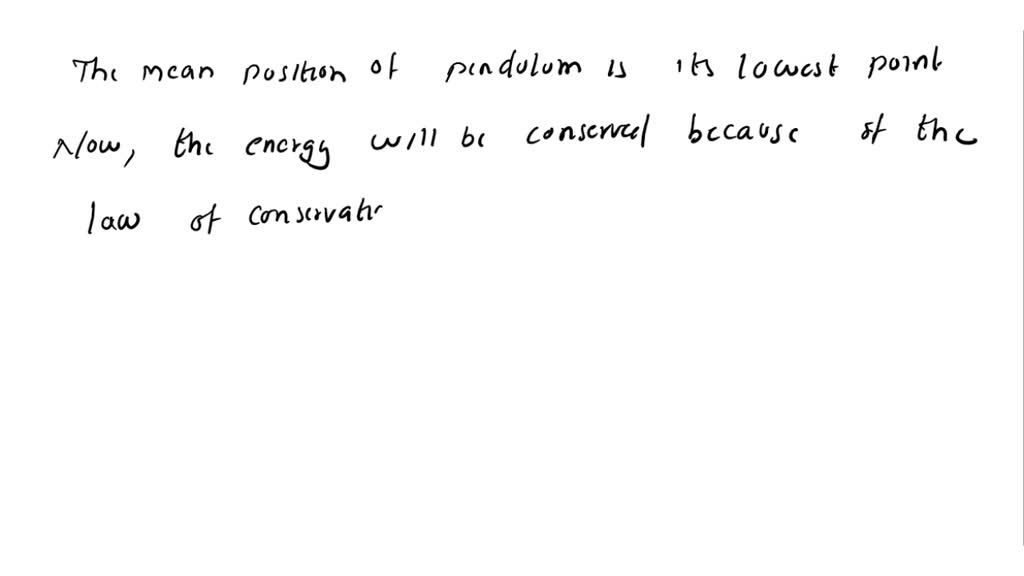 The mean position of pendulum is its lowest point
Now, the energy will be conserved because of the
law of conservatio